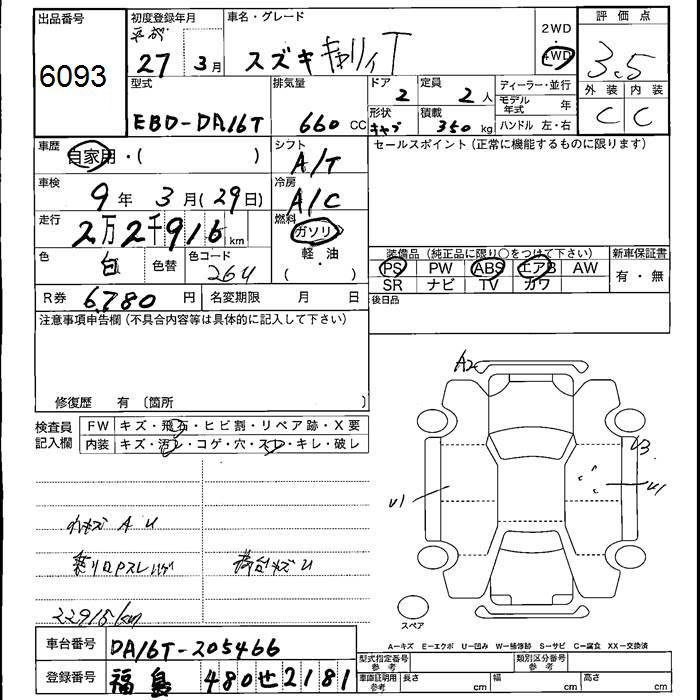 出品番号
6093
初度登録年月
平成
27 3月
車名・グレード
スズキ キャリィT
2WD
4WD
評価点
3.5
外装 内装
C C
型式
EBD-DA16T
排気量
660 CC
ドア
2
定員
2人
形状
キャブ
積載
350 kg
ディーラー・並行
モデル年式 年
ハンドル 左・右
車歴
自家用・( )
シフト
A/T
セールスポイント(正常に機能するものに限ります)
車検
9年 3月(29日)
冷房
A/C
走行
2万2千916km
燃料
ガソリン
軽・油
( )
色
白
色替
色コード
26U
装備品(純正品に限り○をつけて下さい)
PS PW ABS エアB AW
SR ナビ TV カワ
新車保証書
有・無
R券 6,780円
名変期限 月 日
後日品
注意事項申告欄(不具合内容等は具体的に記入して下さい)
修復歴 有(箇所
検査員記入欄
FW キズ・飛石・ヒビ割・リペア跡・X要
内装 キズ・汚レ・コゲ・穴・スレ・キレ・破レ
A2
U3
U1
U1
A U
荷台キズU
スペア
A=キズ E=エクボ U=凹み W=補修跡 S=サビ C=腐食 XX=交換済
車台番号 DA16T-205466
登録番号 福島 480せ2181
型式指定番号 参考
類別区分番号 参考
車庫証明用 参考
長さ cm 幅 cm 高さ cm